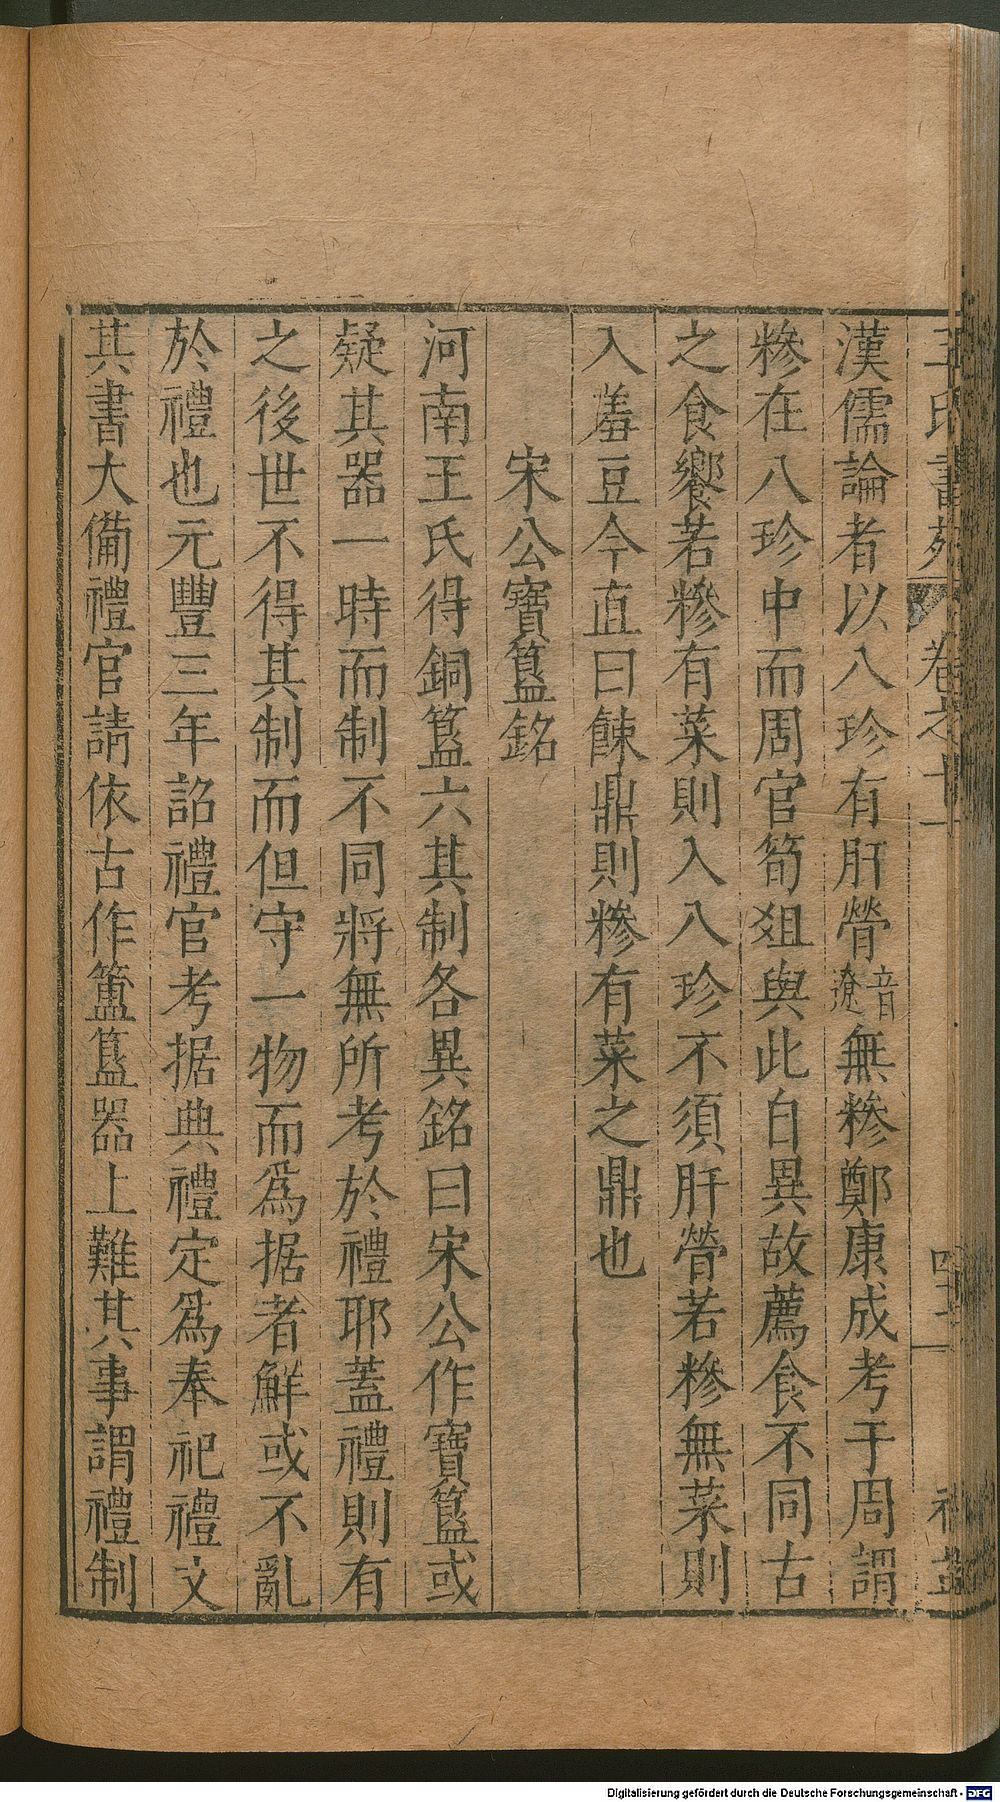 王氏書苑 卷之十一
漢儒論者以八珍有肝膋音遼無糝鄭康成考于周謂
糝在八珍中而周官筍爼與此自異故薦食不同古
之食饗若糝有菜則入八珍不須肝膋若糝無菜則
入羞豆今直曰餗鼎則糝有菜之鼎也
宋公寶簋銘
河南王氏得銅簋六其制各異銘曰宋公作寶簋或
疑其器一時而制不同將無所考於禮耶蓋禮則有
之後世不得其制而但守一物而爲据者鮮或不亂
於禮也元豐三年詔禮官考据典禮定爲奉祀禮文
其書大備禮官請依古作簠簋器上難其事謂禮制
Digitalisierung gefördert durch die Deutsche Forschungsgemeinschaft - DFG